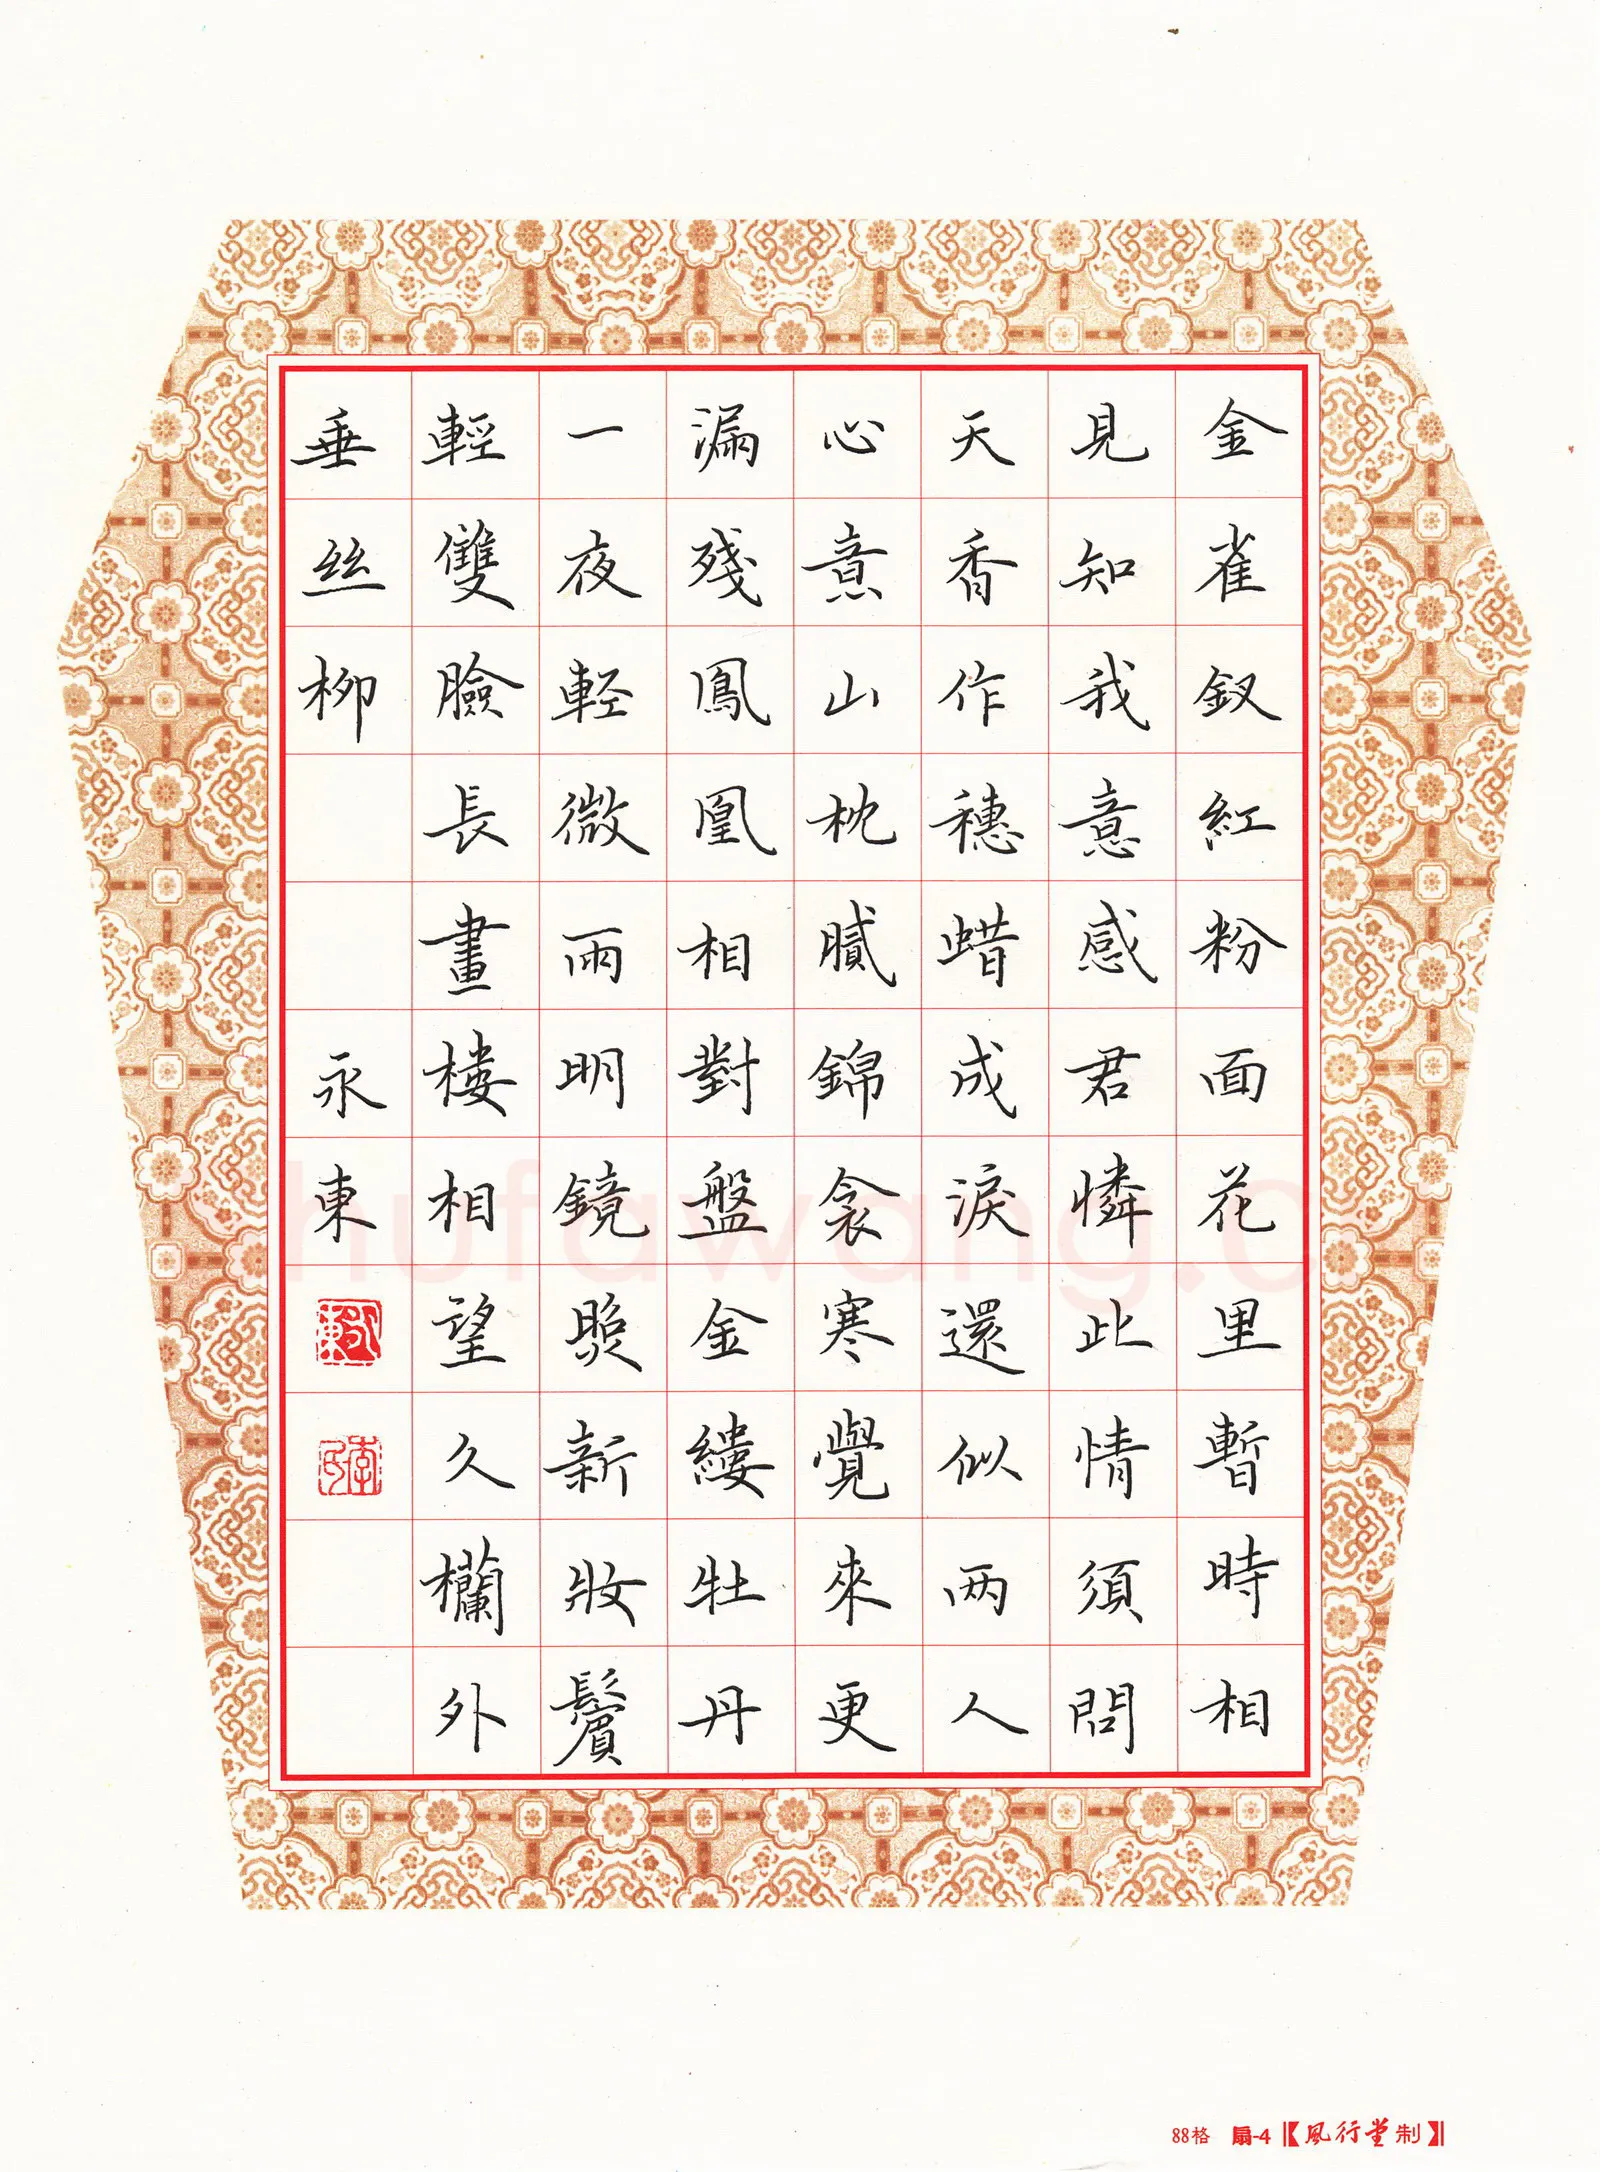 金雀釵紅粉面花里暫時相
見知我意感君憐此情須問
天香作穗蜡成淚還似两人
心意山枕膩錦衾寒覺來更
漏殘鳳凰相對盤金縷牡丹
一夜輕微雨明鏡照新妝鬢
輕雙臉長畫樓相望久欄外
垂丝柳
永東
88格 扇-4【風行堂制】